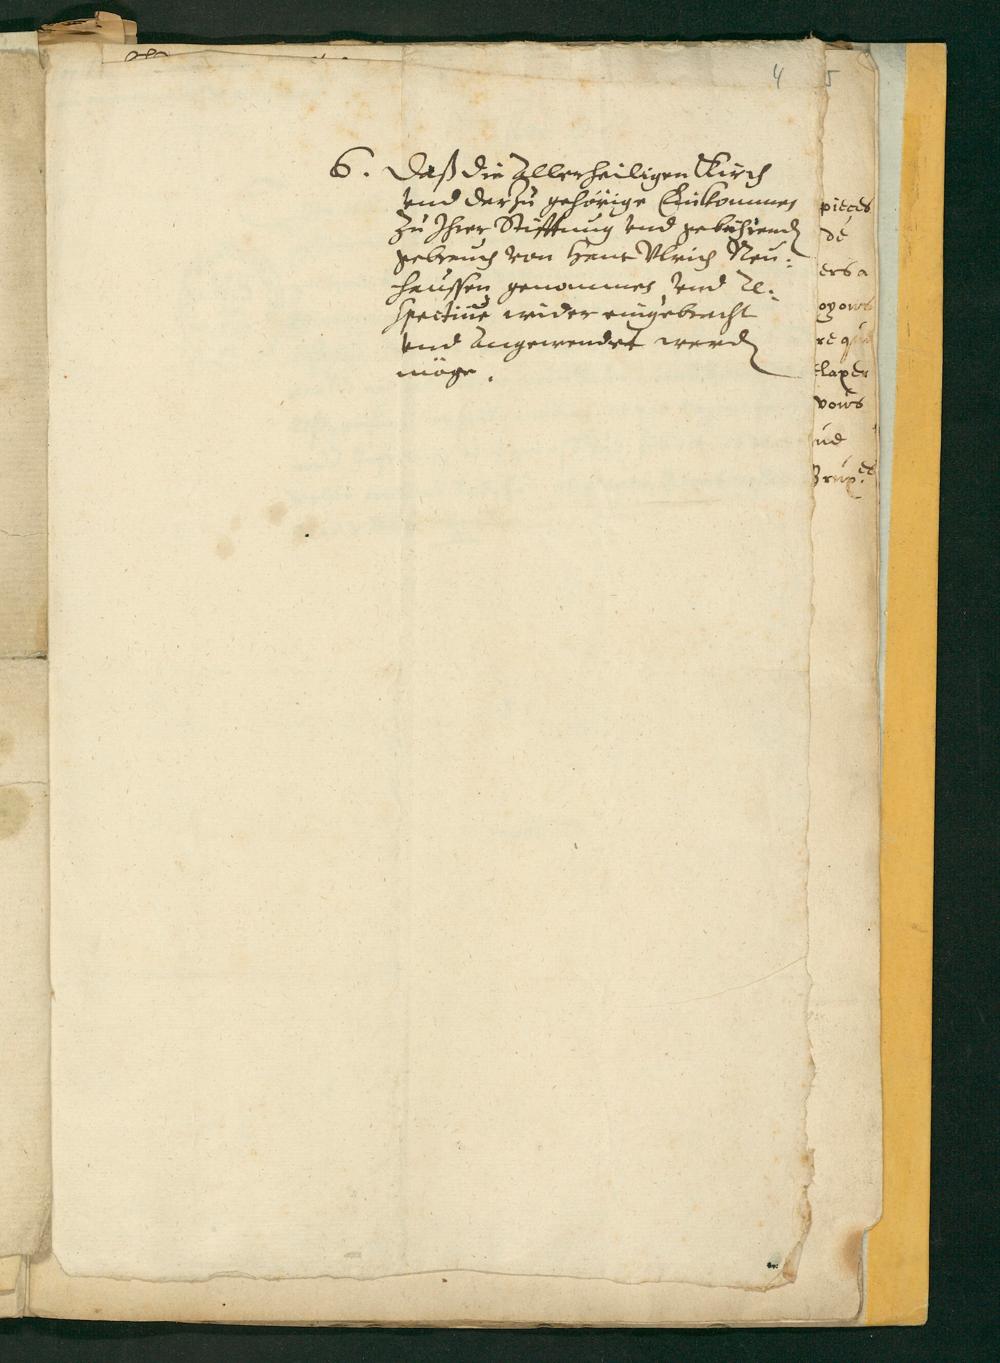 4
5
6. Daß die Allerheiligen Kirch
vnd darzu gehörige Einkommen
zu Ihrer Stifftung vnd gebührend
gebrauch von Hans Vlrich Neu:
haussen genommen, vnd re:
spectiue wider eingebracht
vnd angewendet werd
möge.
pieces
de
ers a
oyons
vous